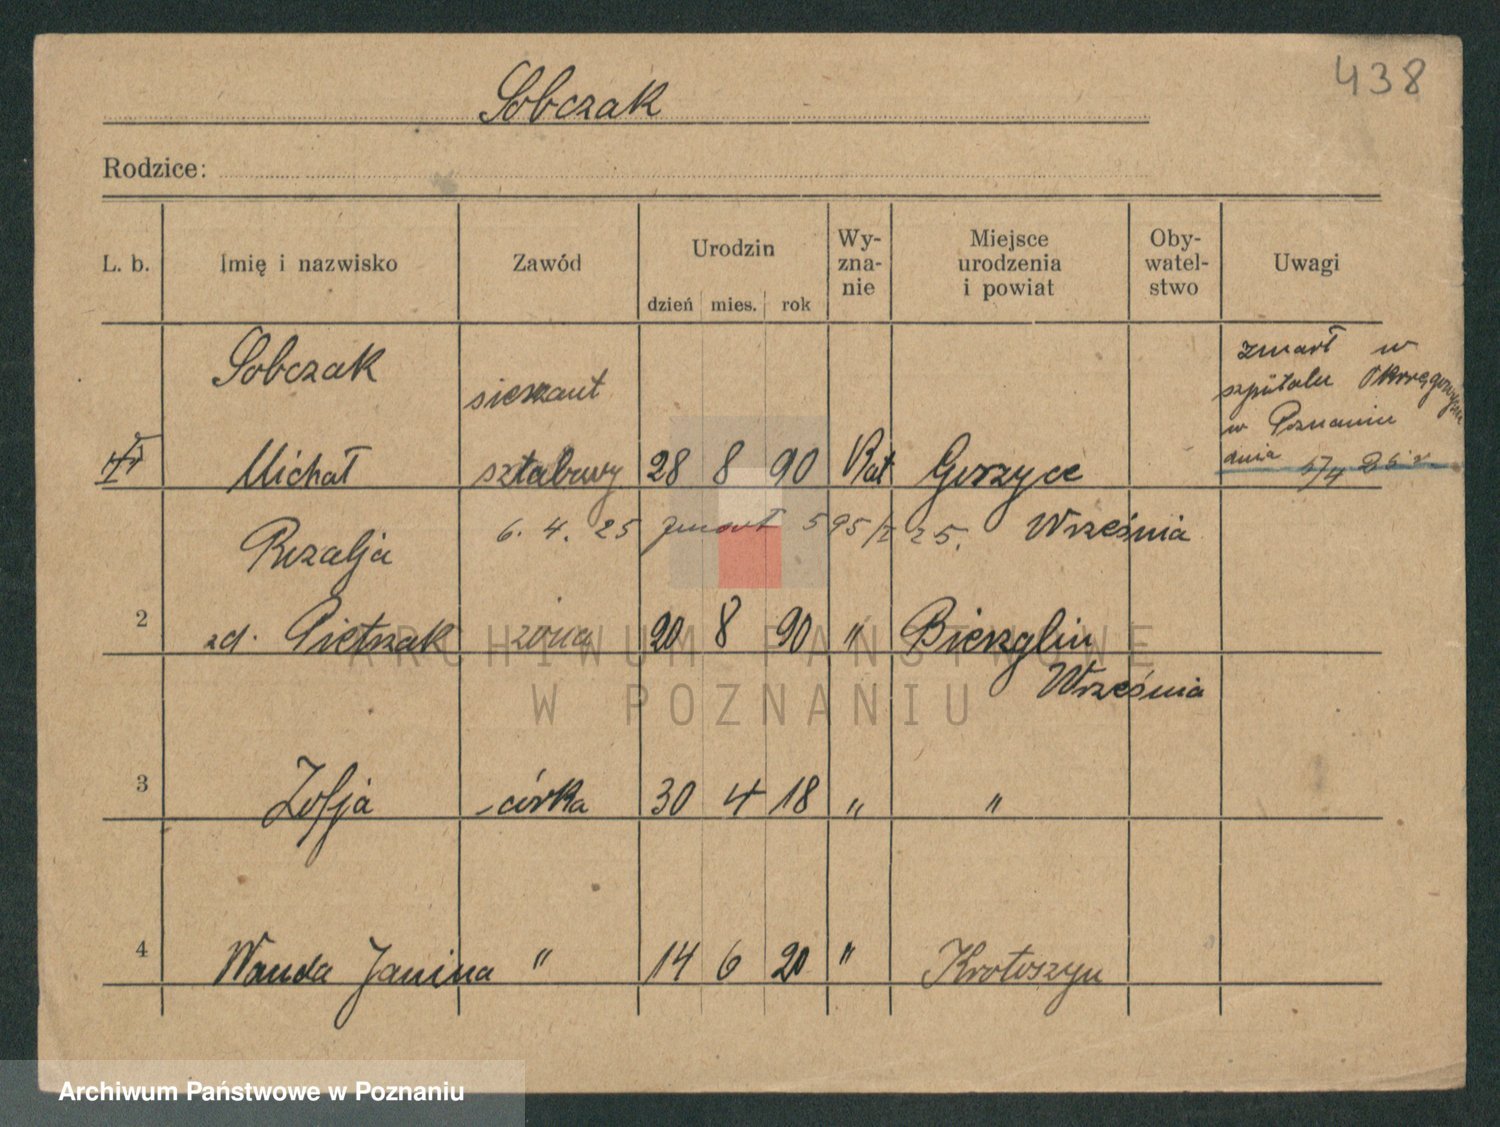 438
Sobczak
Rodzice:
L. b. Imię i nazwisko Zawód Urodzin dzień mies. rok Wy-zna-nie Miejsce urodzenia i powiat Oby-watel-stwo Uwagi
Sobczak
sierzant
zmarł w
szpitalu Okręgowym
w Poznaniu
dnia
Michał sztabowy 28 8 90 Kat Gorzyce
6. 4. 25 zmarł 595/I 25. Września
Rozalja
2 zd. Pietrzak żona 20 8 90 " Bierzglin
Września
3 Zofja córka 30 4 18 " "
4 Wanda Janina " 14 6 20 " Krotoszyn
ARCHIWUM PAŃSTWOWE
W POZNANIU
Archiwum Państwowe w Poznaniu